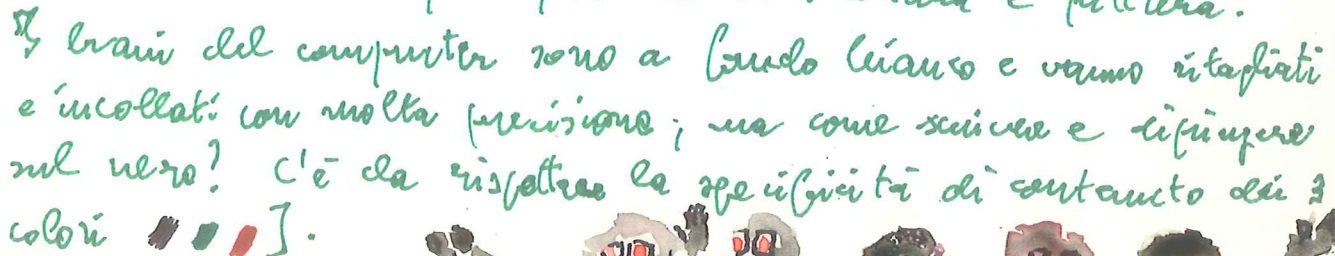 scrittura e pittura.
I brani del computer sono a fondo bianco e vanno ritagliati
e incollati con molta precisione; ma come scrivere e dipingere
sul nero? C'è da rispettare la specificità di contenuto dei 3
colori ].